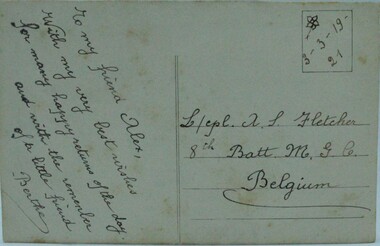 To my friend Alex,
With my very best wishes
for many happy returns of the day
and with the remember
of a little friend
Berthe
L/cpl. A. S. Fletcher
8th Batt M. G. C.
Belgium